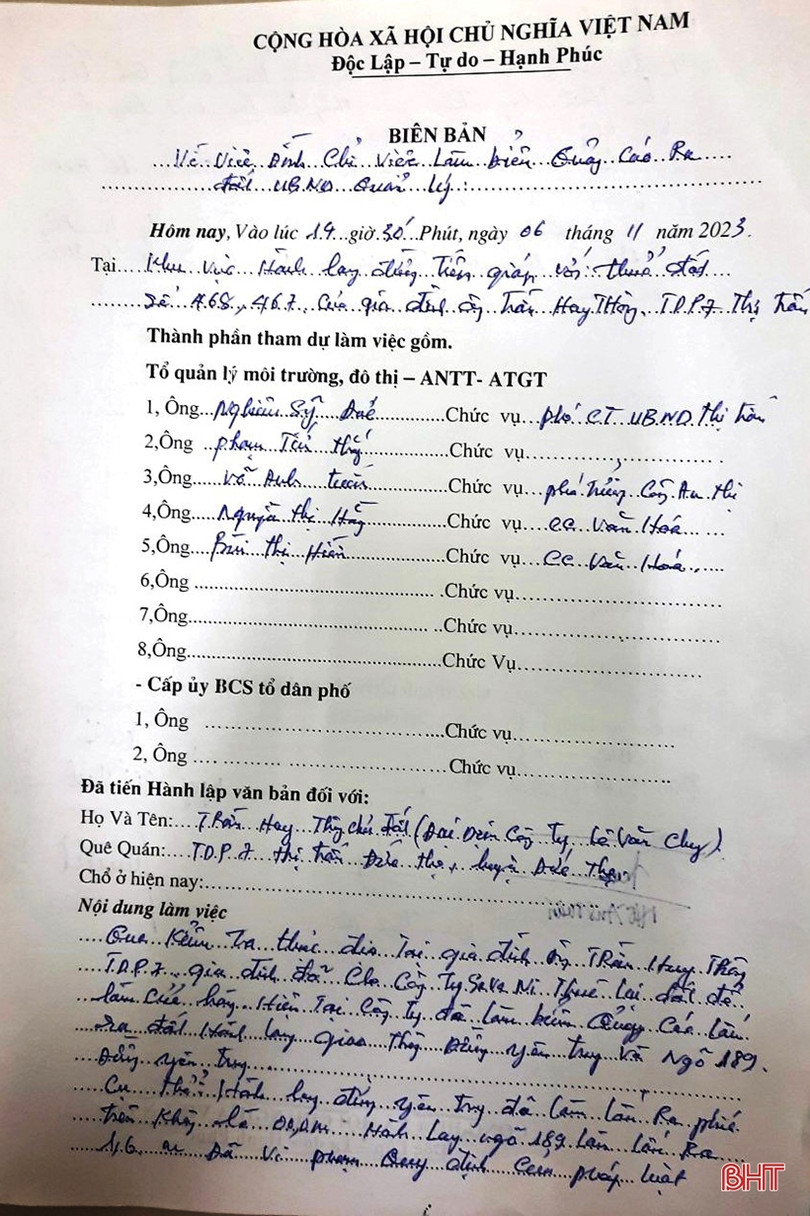 CỘNG HÒA XÃ HỘI CHỦ NGHĨA VIỆT NAM
Độc Lập – Tự do – Hạnh Phúc
BIÊN BẢN
Về việc Đình Chỉ việc Làm biển Quảng Cáo Ra
đất UBND Quản lý:
Hôm nay, Vào lúc 14 giờ 30 Phút, ngày 06 tháng 11 năm 2023.
Tại Khu vực Hành lang đường tiếp giáp với thuở đất
Số 468, 467 Của gia đình ông Trần Huy Thông, TDP7 Thị trấn
Thành phần tham dự làm việc gồm.
Tổ quản lý môi trường, đô thị – ANTT- ATGT
1, Ông Nghiêm Sỹ Chức vụ phó CT UBND Thị trấn
2,Ông phạm Chức vụ
3,Ông Võ Anh tuấn Chức vụ phó trưởng Công An thị
4,Ông Nguyễn thị Chức vụ CC Văn Hoá
5,Ông Bùi thị Hiền Chức vụ CC Văn Hoá
6,Ông Chức vụ
7,Ông Chức vụ
8,Ông Chức Vụ
- Cấp ủy BCS tổ dân phố
1, Ông Chức vụ
2, Ông Chức vụ
Đã tiến Hành lập văn bản đối với:
Họ Và Tên: Trần Huy Thông chủ đất (Đại Diện Công Ty, Lê Văn Chung)
Quê Quán: TDP 7 thị trấn Đức thọ, huyện Đức Thọ
Chổ ở hiện nay:
Nội dung làm việc
Qua Kiểm Tra thực địa Tại gia đình ông Trần Huy Thông
TDP7 gia đình đã Cho Công Ty Thuê lại đất để
làm cửa hàng Hiện Tại Công ty đã làm biển Quảng Cáo lấn
Ra đất Hành lang giao Thông Đường yên trung Và Ngõ 189.
Đường yên trung
Cụ thể: Hành lang đường yên trung đã làm lấn Ra phía
trên Không là Hành lang ngõ 189 làm lấn Ra
1,6 m Đã Vi phạm Quy định Của pháp luật
BHT